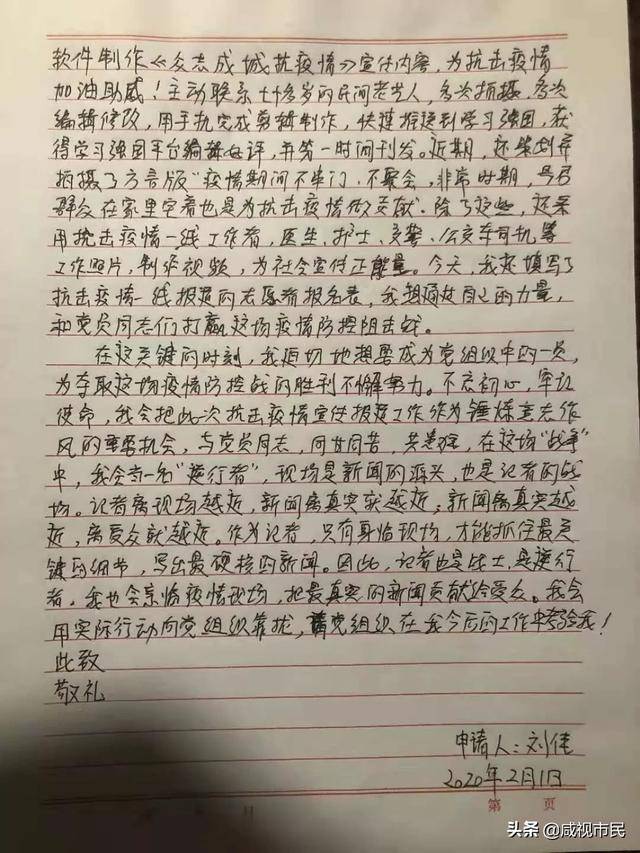 软件制作《众志成城抗疫情》宣传内容，为抗击疫情
加油助威！主动联系七十多岁的民间老艺人，多次拍摄、多次
编辑修改，用手机完成剪辑制作，快速推送到学习强国，获
得学习强国平台编辑好评，并第一时间刊发。近期，还策划并
拍摄了方言版"疫情期间不串门、不聚会，非常时期，号召
群众在家里宅着也是为抗击疫情做贡献"。除了这些，还采
用抗击疫情一线工作者，医生、护士、交警、公交车司机等
工作照片，制作视频，为社会宣传正能量。今天，我还填写了
抗击疫情一线报道的志愿者报名表，我想通过自己的力量，
和党员同志们打赢这场疫情防控阻击战。
在这关键的时刻，我迫切地想要成为党组织中的一员，
为夺取这场疫情防控战的胜利不懈努力。不忘初心，牢记
使命，我会把此次抗击疫情宣传报道工作作为锤炼意志作
风的重要机会，与党员同志，同甘同苦，共患难，在这场"战争"
中，我会当一名"逆行者"，现场是新闻的源头，也是记者的战
场。记者离现场越近，新闻离真实就越近；新闻离真实越
近，离受众就越近。作为记者，只有身临现场，才能抓住最关
键的细节，写出最硬核的新闻。因此，记者也是战士，是逆行
者。我也会亲临疫情现场，把最真实的新闻贡献给受众。我会
用实际行动向党组织靠拢，请党组织在我今后的工作中考验我！
此致
敬礼
申请人：刘佳
2020年2月1日
第 页
头条 @咸视市民